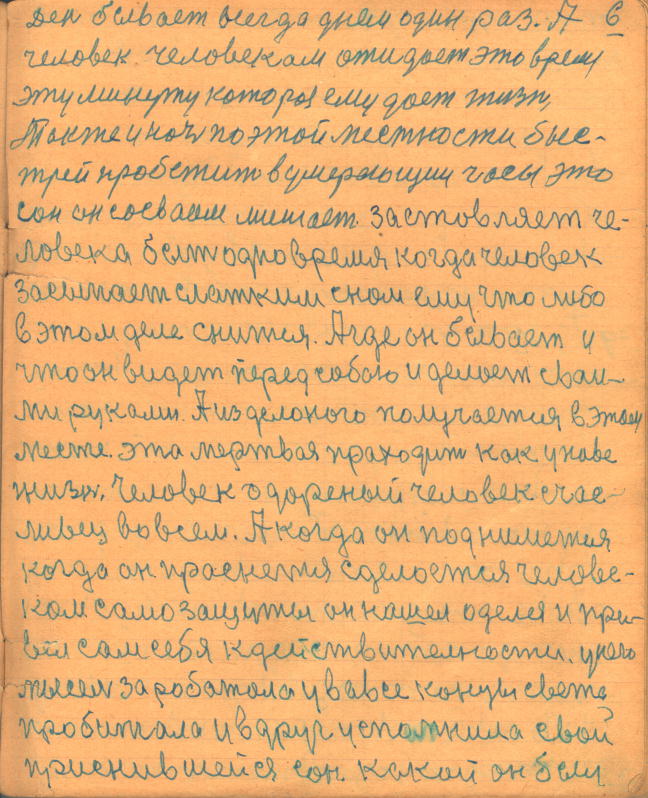 Ден бывает всегда днем один раз. А 6
человек человекам ожидает это время
эту минуту котороя ему дает жизн,
Также и ноч по этой местности быс-
трей пробежит в умерающии часы это
сон он соеваем мишает. застовляет че-
ловека быт одно время когда человек
засыпает слатким сном ему что либо
в этом деле снится. А где он бывает и
что он видет перед собою и делает сваи-
ми руками. А изделоного получается в этом
месте. эта мертвая праходит как унаве
жизн. Человек одореный человек счас-
ливец во всем. А когда он поднимется
когда он праснется сделоется челове-
ком само защиты он нашел оделся и при-
вел сам себя к действителности. у него
мысел заработала и в а все концы света
пробижала и вдруг успомнила свой
приснившейся сон. какой он был